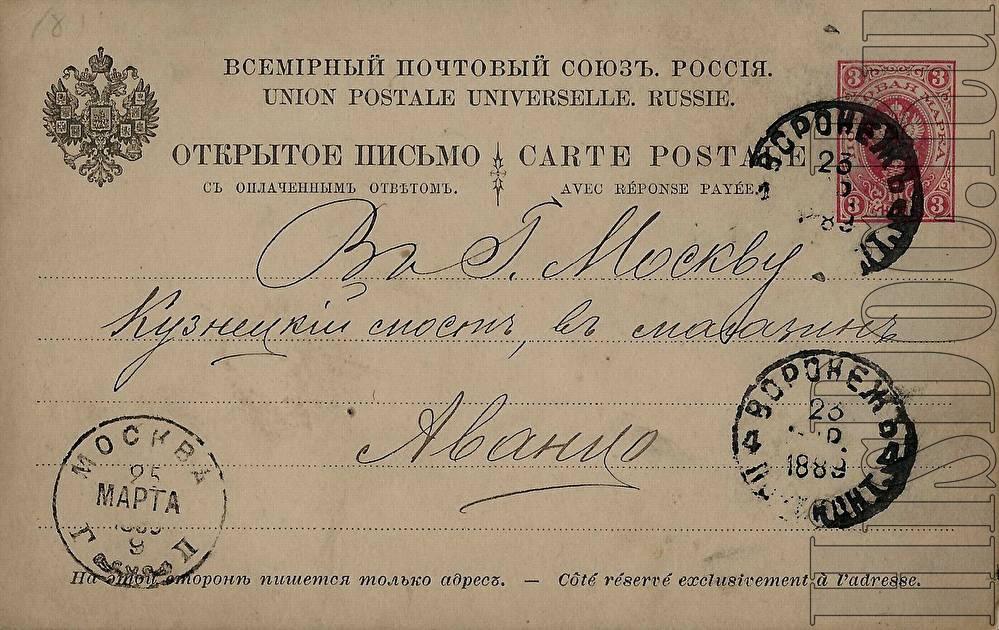 ВСЕМІРНЫЙ ПОЧТОВЫЙ СОЮЗЪ. РОССІЯ.
UNION POSTALE UNIVERSELLE. RUSSIE.
ОТКРЫТОЕ ПИСЬМО CARTE POSTALE
СЪ ОПЛАЧЕННЫМЪ ОТВѢТОМЪ. AVEC RÉPONSE PAYÉE.
3 3
МАРКА
3 3
ВОРОНЕЖЪ
23
89
Въ Г. Москву
Кузнецкій мостъ, въ магазинъ
Аванцо
ВОРОНЕЖЪ
4 23 4
1889
МОСКВА
25
МАРТА
1889
9
На этой сторонѣ пишется только адресъ. — Côté réservé exclusivement à l'adresse.